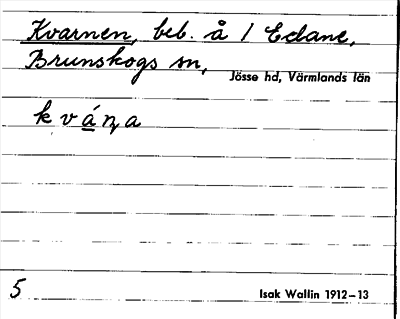 Kvarnen, beb. å 1 Edane,
Brunskogs sn,
Jösse hd, Värmlands län
kváṇa
5
Isak Wallin 1912-13